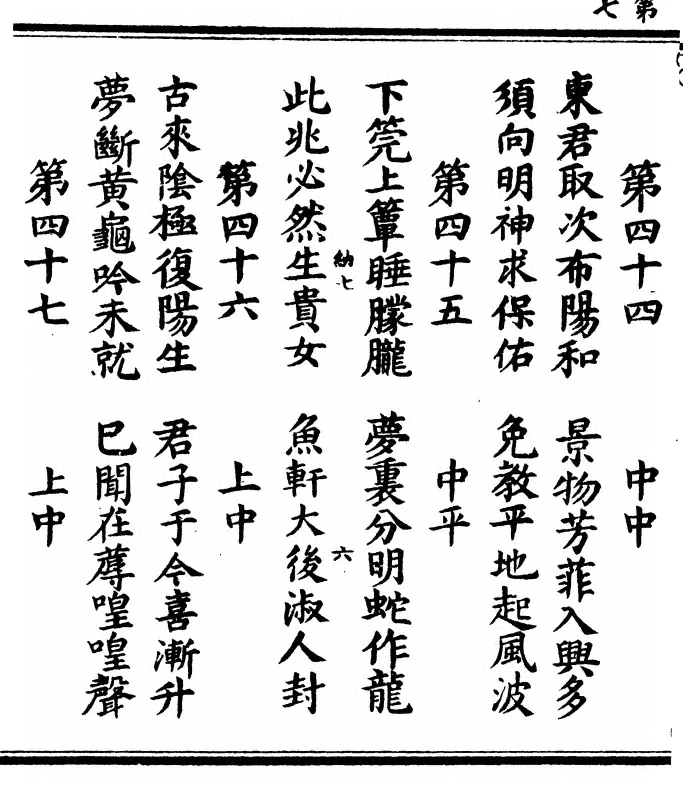 第七
第四十四 中中
東君取次布陽和 景物芳菲入興多
須向明神求保佑 免教平地起風波
第四十五 中平
下筦上簟睡朦朧 夢裏分明蛇作龍
納七 六
此兆必然生貴女 魚軒大後淑人封
第四十六 上中
古來陰極復陽生 君子于今喜漸升
夢斷黄龜吟未就 巳聞在蓐喤喤聲
第四十七 上中